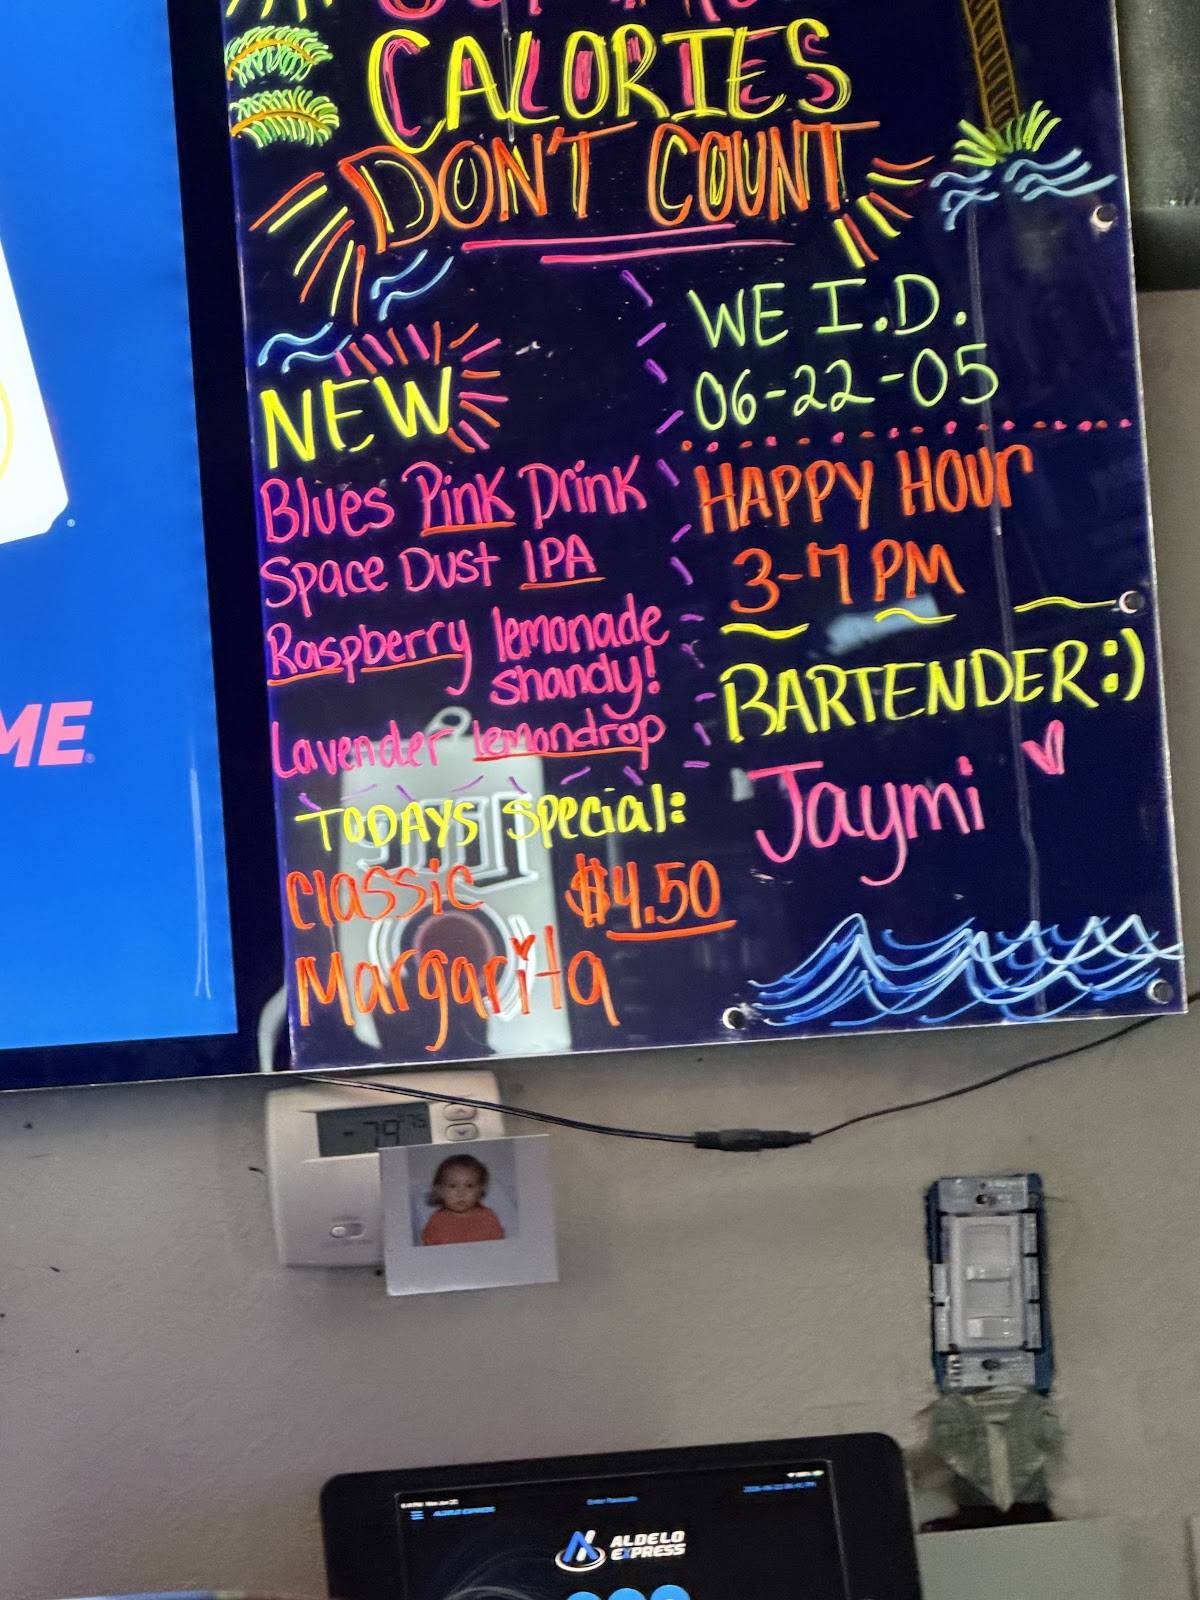 CALORIES
DON'T COUNT
NEW
Blues Pink Drink
Space Dust IPA
Raspberry lemonade
shandy!
Lavender lemondrop
TODAYS special:
Classic $4.50
Margarita
WE I.D.
06-22-05
HAPPY HOUr
3-7 PM
BARTENDER:)
Jaymi
ME
79
ALDELO EXPRESS
Enter Passcode
ALDELO
EXPRESS